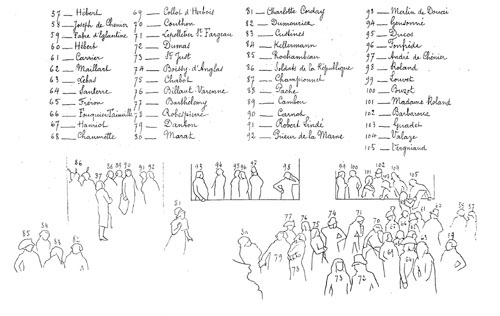 57 — Hébert
58 — Joseph de Chénier
59 — Fabre d'Eglantine
60 — Hébert
61 — Carrier
62 — Maillart
63 — Lebas
64 — Santerre
65 — Fréron
66 — Fouquier Tainville
67 — Hanriot
68 — Chaumette
69 — Collot d'Herbois
70 — Couthon
71 — Lepelletier St Fargeau
72 — Dumas
73 — St Just
74 — Boissy d'Anglas
75 — Chabot
76 — Billaut Varenne
77 — Barthélemy
78 — Robespierre
79 — Danton
80 — Marat
81 — Charlotte Corday
82 — Dumouriez
83 — Custines
84 — Kellermann
85 — Rochambeau
86 — Soldats de la République
87 — Championnet
88 — Pache
89 — Cambon
90 — Carnot
91 — Robert Lindé
92 — Prieur de la Marne
93 — Merlin de Douai
94 — Gensonné
95 — Ducos
96 — Fonfrède
97 — André de Chénier
98 — Roland
99 — Louvet
100 — Buzot
101 — Madame Roland
102 — Barbaroux
103 — Guadet
104 — Valazé
105 — Vergniaud
86
98
99 100 101 102
105
81
85 84
77 76
79 78
73 72